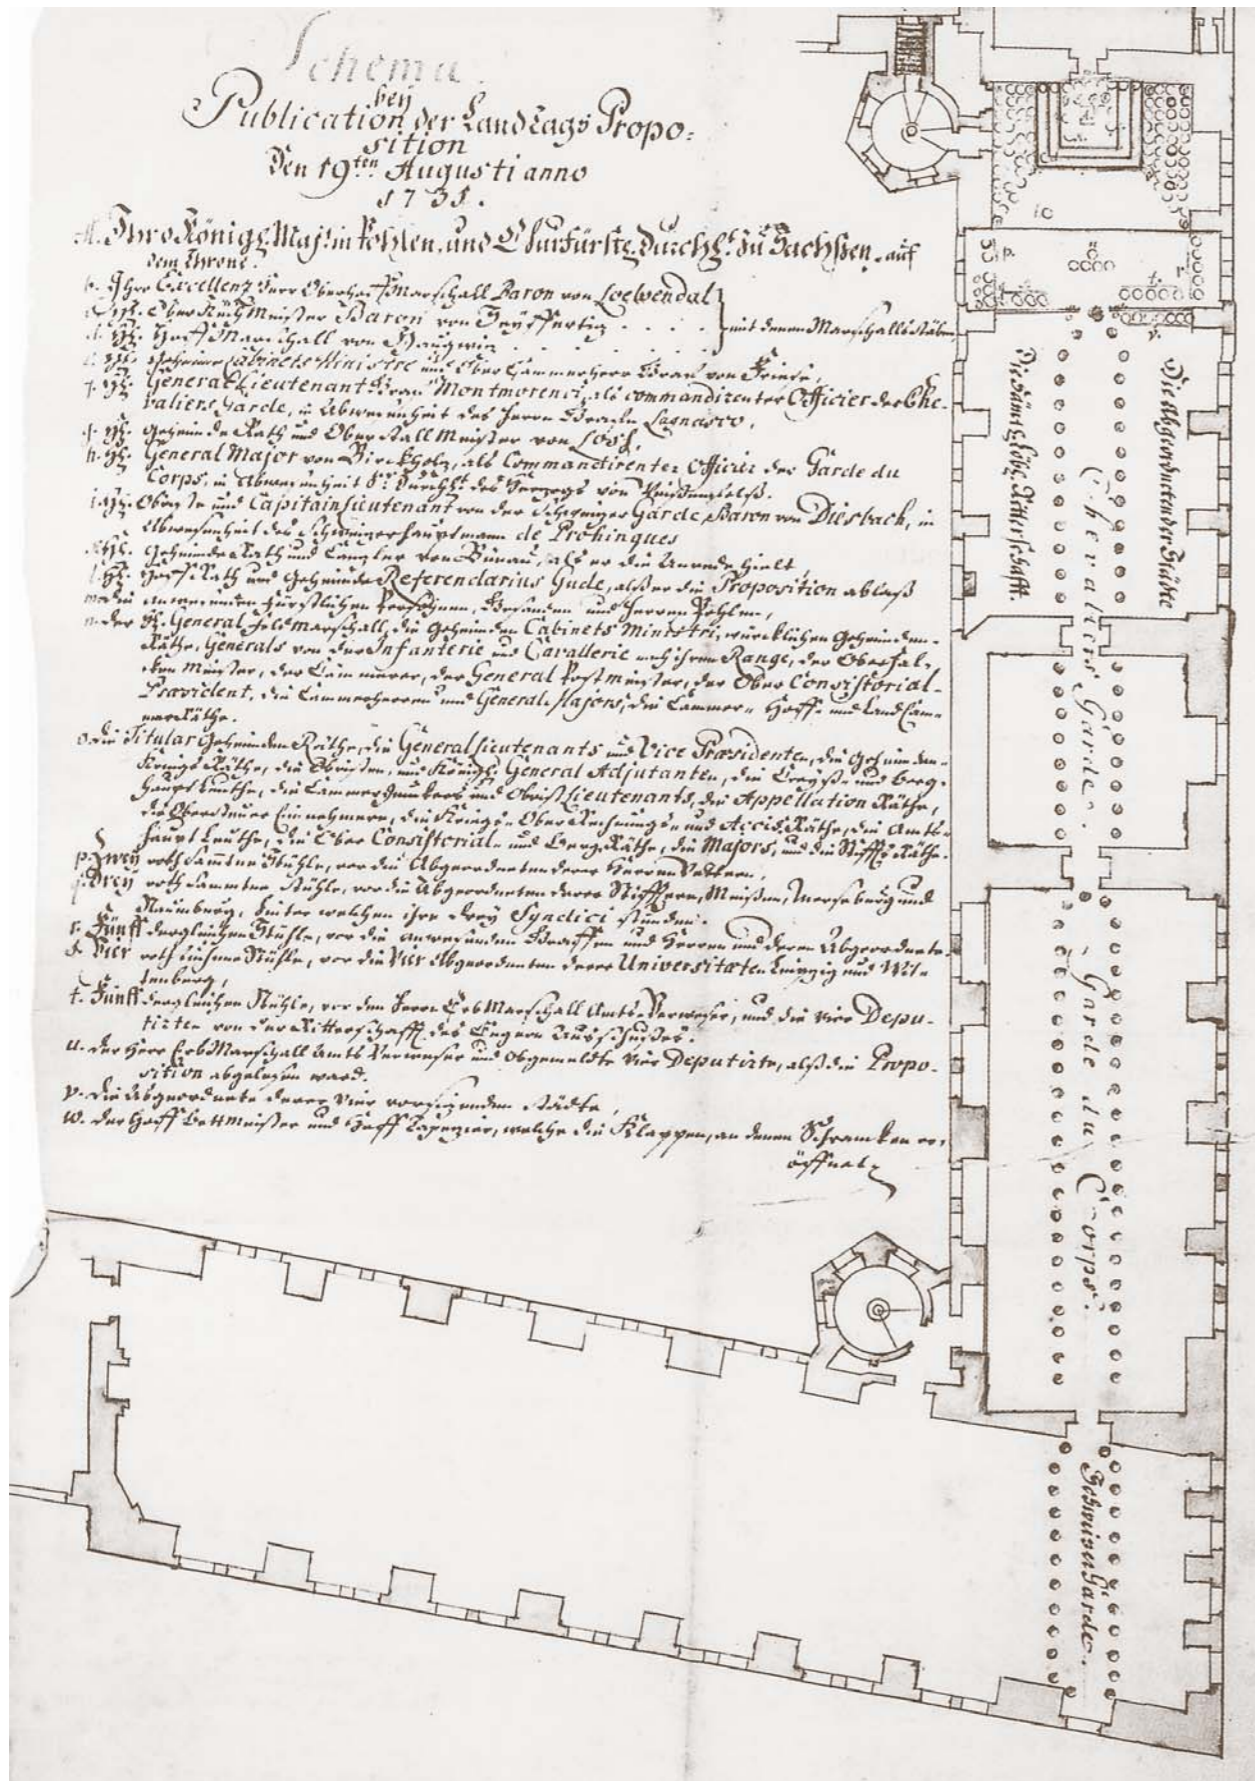 Schema
bey
Publication der LandTags Propo-
sition
Den 19ten Augusti anno
1731.
A. Ihro Königl. Maj. in Pohlen, und Churfürstl. Durchl. zu Sachßen, auf
dem Throne.
b. Ihre Excellenz Herr Oberhoff Marschall Baron von Loewendal
Ober Küch Meister Baron von Seyffertiz . . . . mit denen Marschalls Stäben
d. Hr. Hoff Marschall von Haugwiz . . . . .
e. Hr. Geheimer Cabinets Ministre und Ober Cammerherr Graf von Friese,
f. Hr. General Lieutenant Graf Montmorenci, als commandirenter Officier der Che-
valiers Garde, in Abwesenheit des Herrn Grafen Lagnasco,
g. Hr. Geheimde Rath und Ober Stall Meister von Löß,
h. Hr. General Major von Birckholz, als Commandirenter Officier der Garde du
Corps, in Abwesenheit Sr. Durchl. des Herzogs von Weißenfelß.
i. Hr. Obriste und Capitain Lieutenant von der Schweizer Garde, Baron von Diesbach, in
Abwesenheit des Schweizerhauptmann de Prohingues
k. Hr. Geheimde Rath und Canzler von Bünau, als er die Anrede hielt,
l. Hr. Hoff Rath und Geheimde Referendarius Gude, alßer die Proposition ablaß
m. die anwesenden Fürstlichen Persohnen, Gesanden und Herren Pohlen,
n. der Hr. General Feld Marschall, die Geheimden Cabinets Ministri, würcklichen Geheimden-
Räthe, Generals von der Infanterie und Cavallerie nach ihrem Range, der Oberfal-
cken Meister, der Cämmerer, der General Postmeister, der Ober Consistorial-
Præsident, die Cammerherren und General Majors, die Cammer- Hoff- und Land Cam-
mer Räthe.
o. die Titular Geheimden Räthe, die General Lieutenants und Vice Præsidenten, die Geheimden-
Kriegs Räthe, die Obristen, und Königl. General Adjutanten, die Creyß- und Berg-
Hauptleuthe, die Cammer Junckers und Obrist Lieutenants, die Appellation Räthe,
die Obersteuer Einnehmere, die Kriegs- Ober Rechnungs- und Accis Räthe, die Amts-
hauptleuthe, die Ober Consistorial- und Berg Räthe, die Majors, und die Stiffts Räthe.
p. Zwey roth Sammtne Stühle, vor die Abgeordneten derer Herren Vettern,
q. Drey roth Sammtne Stühle, vor die Abgeordneten derer Stiffter, Meißen, Merseburg und
Naumburg, hinter welchen ihre drey Syndici stunden.
r. Fünff dergleichen Stühle, vor die anwesenden Graffen und Herren und deren Abgeordnete
s. Vier roth tuchene Stühle, vor die vier Abgeordneten derer Universitæten Leipzig und Wit-
tenberg,
t. Fünff dergleichen Stühle, vor dem Herrn Erb Marschall Amts Verweser, und die vier Depu-
tirte von der Ritterschafft des Engern Ausschußes.
u. der Herr Erb Marschall Amts Verweser und obgemeldte vier Deputirte, alß die Propo-
sition abgelesen ward.
v. die Abgeordnete derer vier vorsizenden Städte,
w. der Hoff Bettmeister und Hoff Tapezier, welche die Klappen, an denen Schrancken er-
öffnet.
Die sämtl. löbl. Ritterschafft.
Die Abgeordneten der Städte
Chevaliers Garde.
Garde du Corps.
Schweizer Garde.